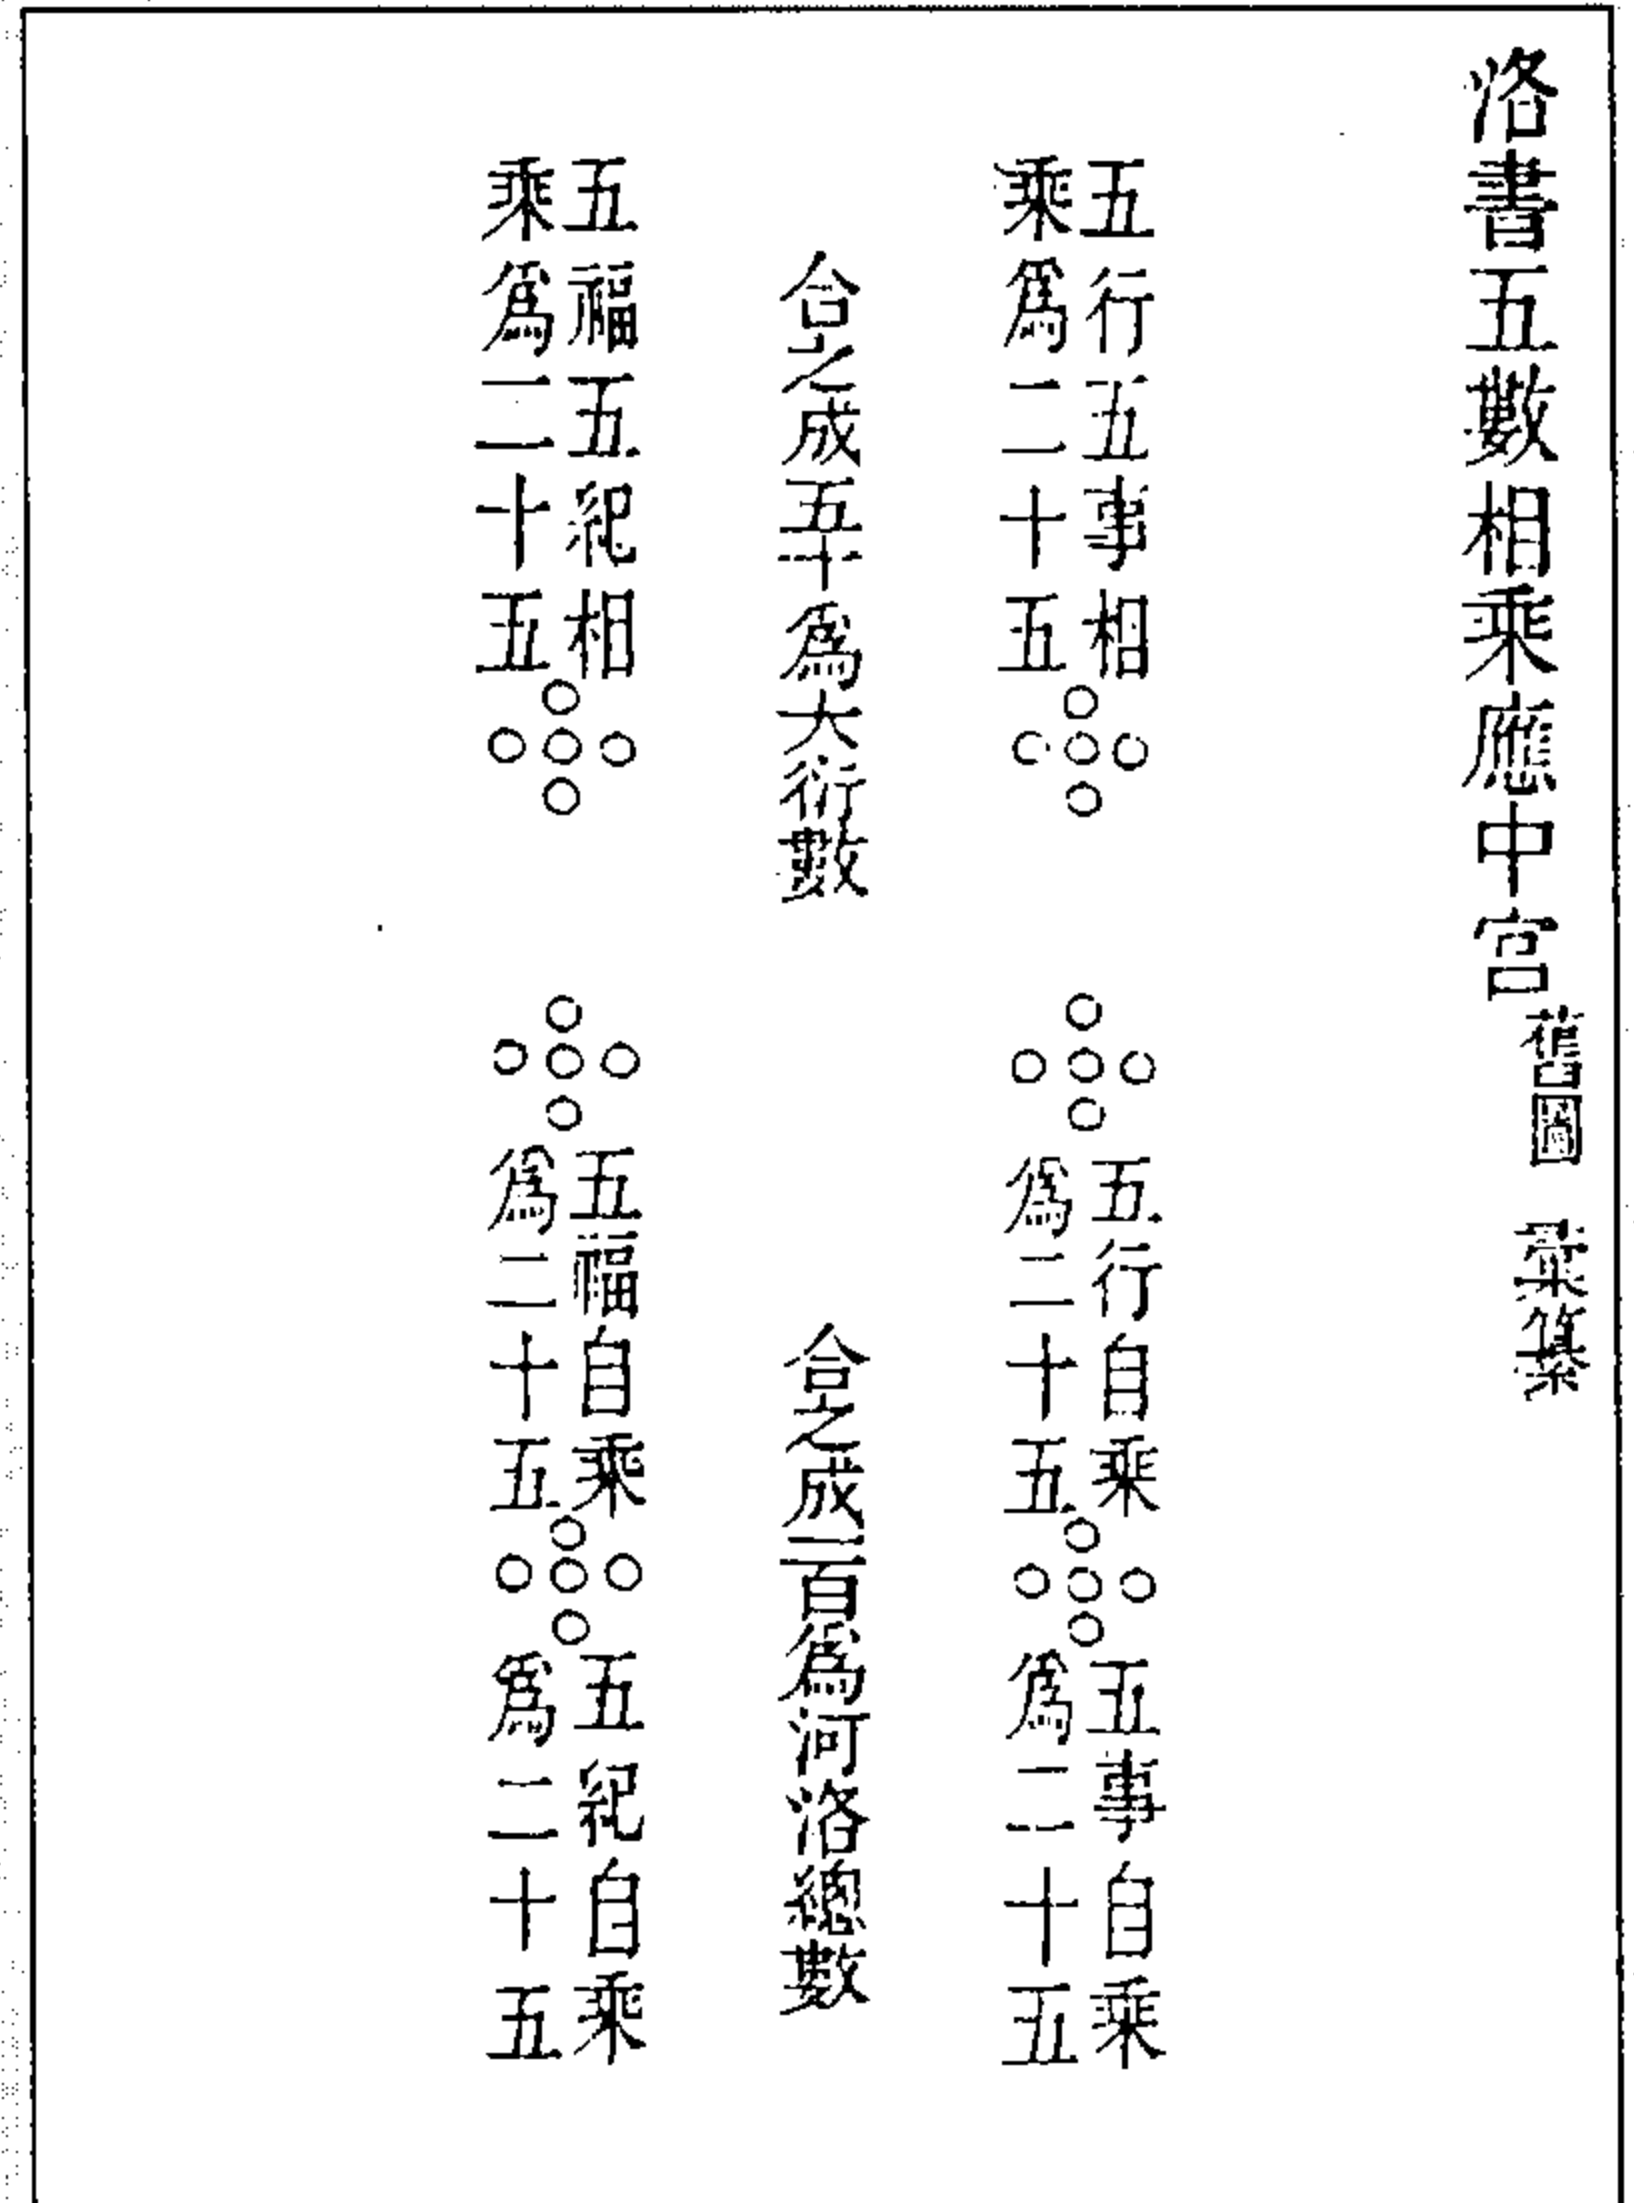 洛書五數相乘應中宮
舊圖 彙纂
五行五事相
乘爲二十五
五行自乘
爲二十五
五事自乘
爲二十五
合之成五十爲大衍數
合之成一百爲河洛總數
五福五紀相
乘爲二十五
五福自乘
爲二十五
五紀自乘
爲二十五